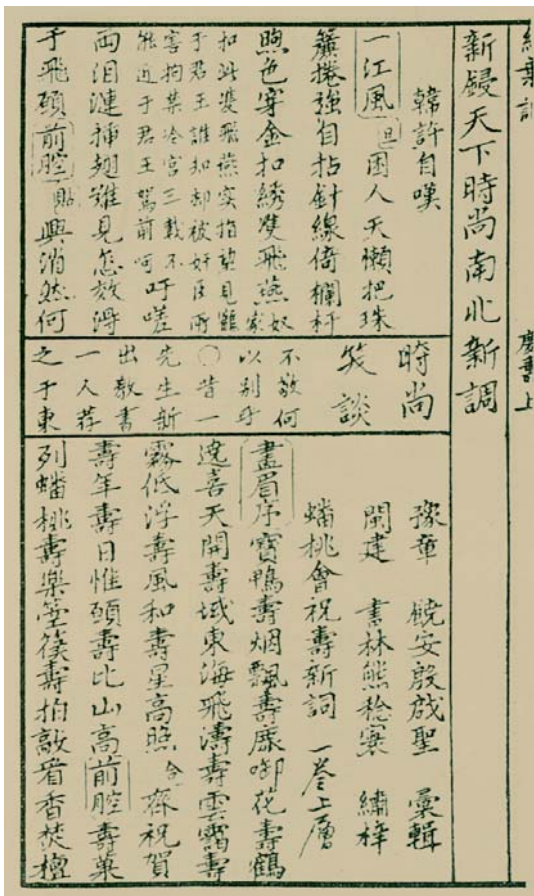 新鋟天下時尚南北新調
韓許自嘆
一江風 旦 困人天懶把珠
簾捲強自拈針線倚欄杆
煦色穿金扣綉雙飛燕奴家
扣此雙飛燕实指望見寵
于君王誰知却被奸臣所
害拘禁冷宮三載不
能近于君王駕前呵吁嗟
兩泪漣插翅難見怎效得
于飛願 前腔 貼 興消然何
時尚
笑談
不敬何
以别乎
○昔一
先生新
出教書
一人荐
之于東
豫章 饒安殷啟聖 彙輯
閩建 書林熊稔寰 繡梓
蟠桃會祝壽新詞 一卷上層
畫眉序 寶鴨壽烟飄壽鹿啣花壽鶴
遶喜天開壽域東海飛濤壽雲霄壽
靄低浮壽風和壽星高照 合 齊祝賀
壽年壽日惟願壽比山高 前腔 壽菓
列蟠桃壽樂箜篌壽拍敲看香焚檀
慶壽上